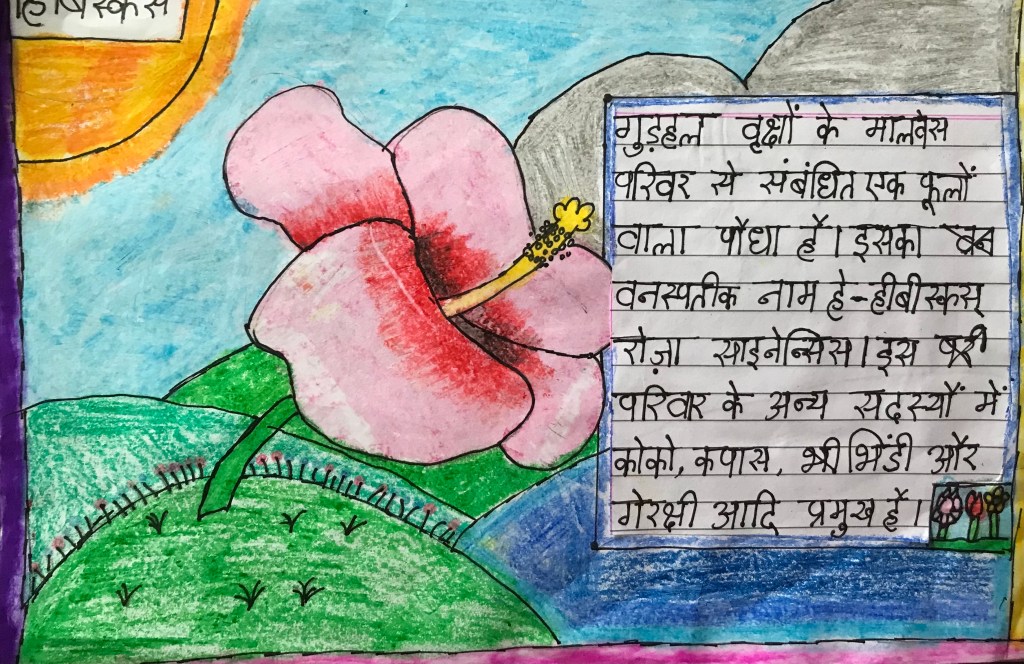 हिबिस्कस
गुड़हल वृक्षों के मालवेस
परिवर से संबंधित एक फूलों
वाला पौधा है। इसका
वनस्पतीक नाम हे-हीबीस्कस्
रोज़ा साइनेन्सिस। इस
परिवार के अन्य सदस्यों में
कोको, कपास, भिंडी और
गेरक्षी आदि प्रमुख है।